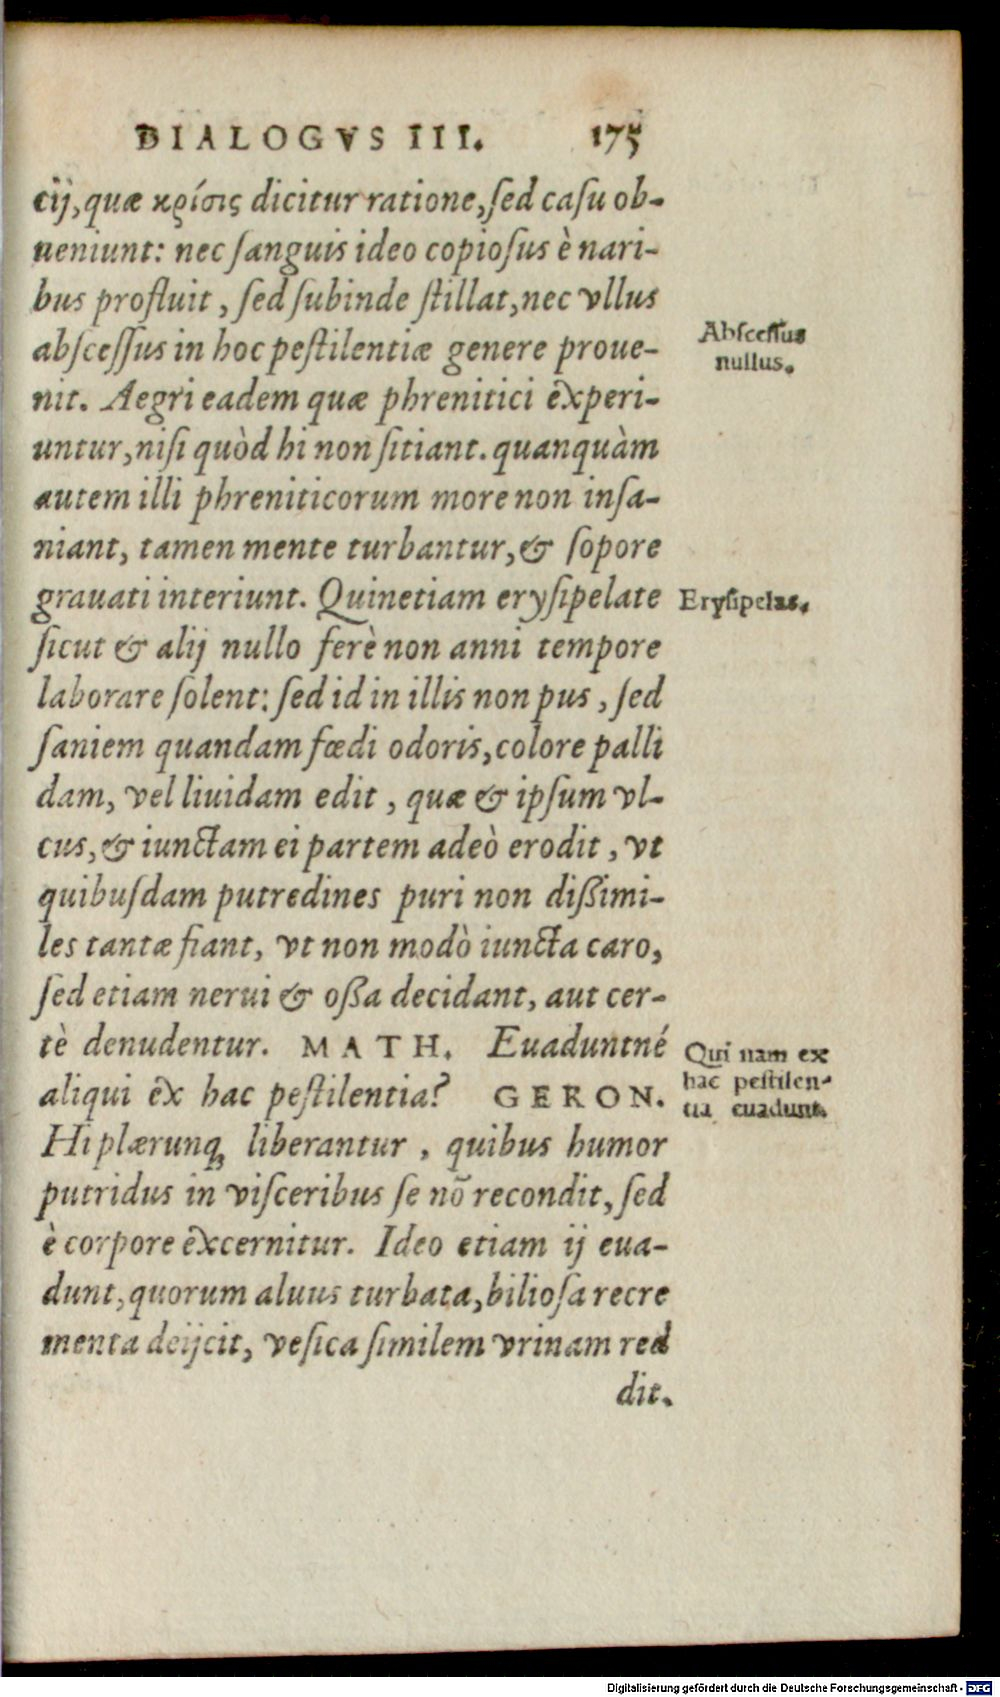 DIALOGVS III. 175
cij, quæ κρίσις dicitur ratione, ſed caſu ob-
ueniunt: nec ſanguis ideo copioſus è nari-
bus profluit, ſed ſubinde ſtillat, nec vllus
abſceſſus in hoc peſtilentiæ genere proue-
nit. Aegri eadem quæ phrenitici experi-
untur, niſi quòd hi non ſitiant. quanquàm
autem illi phreniticorum more non inſa-
niant, tamen mente turbantur, & ſopore
grauati interiunt. Quinetiam eryſipelate
ſicut & alij nullo ferè non anni tempore
laborare ſolent: ſed id in illis non pus, ſed
ſaniem quandam fœdi odoris, colore palli
dam, vel liuidam edit, quæ & ipſum vl-
cus, & iunctam ei partem adeò erodit, vt
quibuſdam putredines puri non dißimi-
les tantæ fiant, vt non modò iuncta caro,
ſed etiam nerui & oßa decidant, aut cer-
tè denudentur. MATH. Euaduntné
aliqui ex hac peſtilentia? GERON.
Hi plærunq; liberantur, quibus humor
putridus in viſceribus ſe nō recondit, ſed
è corpore excernitur. Ideo etiam ij eua-
dunt, quorum aluus turbata, bilioſa recre
menta deijcit, veſica ſimilem vrinam red
dit.
Abſceſſus
nullus.
Eryſipelas.
Qui nam ex
hac peſtilen-
tia euadunt.
Digitalisierung gefördert durch die Deutsche Forschungsgemeinschaft - DFG